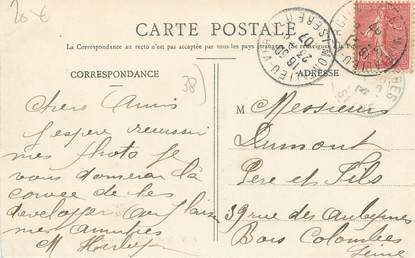 20 €
CARTE POSTALE
La Correspondance au recto n'est pas acceptée par tous les pays étrangers. (Se renseigner à la
CORRESPONDANCE
ADRESSE
38
Chers Amis
J'espère reussir
mes photo je
vous donnerai là
corvée de les
developper
mes amitiés
M
M Messieurs
Dumont
Père et Fils
39 rue des Aubepines
Bois Colombes
Seine